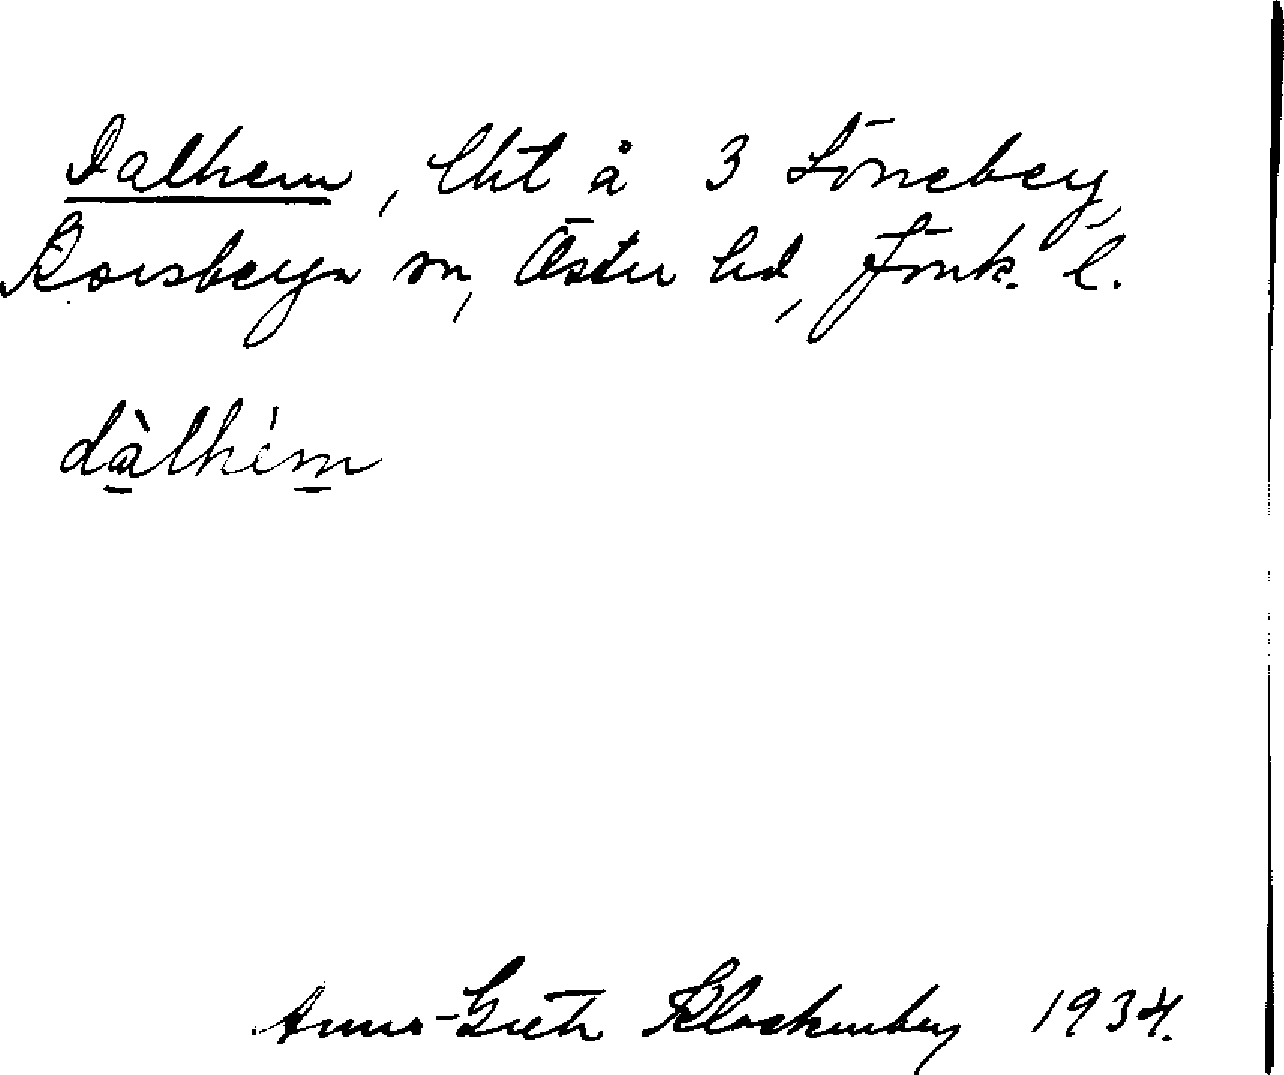 Dalhem, lht å 3 Löneberg,
Korsberga sn, Östra hd, Jönk. l.
dàlhém
Anna-Greta Klockenberg 1934.